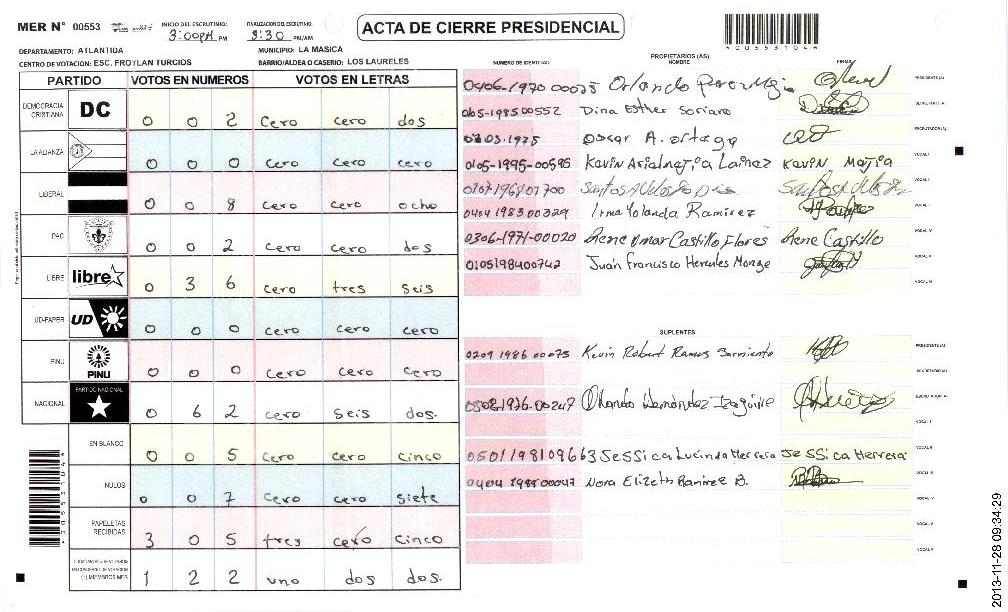 MER N° 00553
INICIO DEL ESCRUTINIO: 3:00PM PM
FINALIZACION DEL ESCRUTINIO 8:30 PM/AM
ACTA DE CIERRE PRESIDENCIAL
DEPARTAMENTO: ATLANTIDA
MUNICIPIO: LA MASICA
CENTRO DE VOTACION: ESC. FROYLAN TURCIOS
BARRIO/ALDEA O CASERIO: LOS LAURELES
PARTIDO VOTOS EN NUMEROS VOTOS EN LETRAS
DEMOCRACIA CRISTIANA DC 0 0 2 cero cero dos
LA ALIANZA 0 0 0 cero cero cero
LIBERAL 0 0 8 cero cero ocho
PAC 0 0 2 cero cero dos
LIBRE libre 0 3 6 cero tres seis
UD-FAPER UD 0 0 0 cero cero cero
PINU PINU 0 0 0 cero cero cero
NACIONAL PARTIDO NACIONAL 0 6 2 cero seis dos.
EN BLANCO 0 0 5 cero cero cinco
NULOS 0 0 7 cero cero siete
PAPELETAS RECIBIDAS 3 0 5 tres cero cinco
(+) MIEMBROS MER 1 2 2 uno dos dos.
NUMERO DE IDENTIDAD
PROPIETARIOS (AS)
NOMBRE
FIRMA
PRESIDENTE(A)
0105-1985 00552 Dina Esther Soriano SECRETARIO(A)
Oscar A. ortega ESCRUTADOR(A)
0105-1995-00595 Kevin KEVIN MAJIA VOCAL I
0707196801700 VOCAL II
0404 1983 00329 Irma Yolanda Ramirez
0306-1971-00020 Rene Omar Castillo Flores Rene Castillo VOCAL IV
0105198400742 Juan Francisco Hercules Monge VOCAL V
VOCAL VI
SUPLENTES
0209 1986 00075 Kevin Robert Ramos Sarmiento PRESIDENTE(A)
SECRETARIO(A)
0502-1976-00247 Orlando Hernández Izaguirre
VOCAL I
0501198109663 Jessica Lucinda Herrera Jessica Herrera VOCAL II
0404 1985 00047 Nora Elizeth Ramirez B. VOCAL III
VOCAL IV
VOCAL V
VOCAL VI
2013-11-28 09:34:29